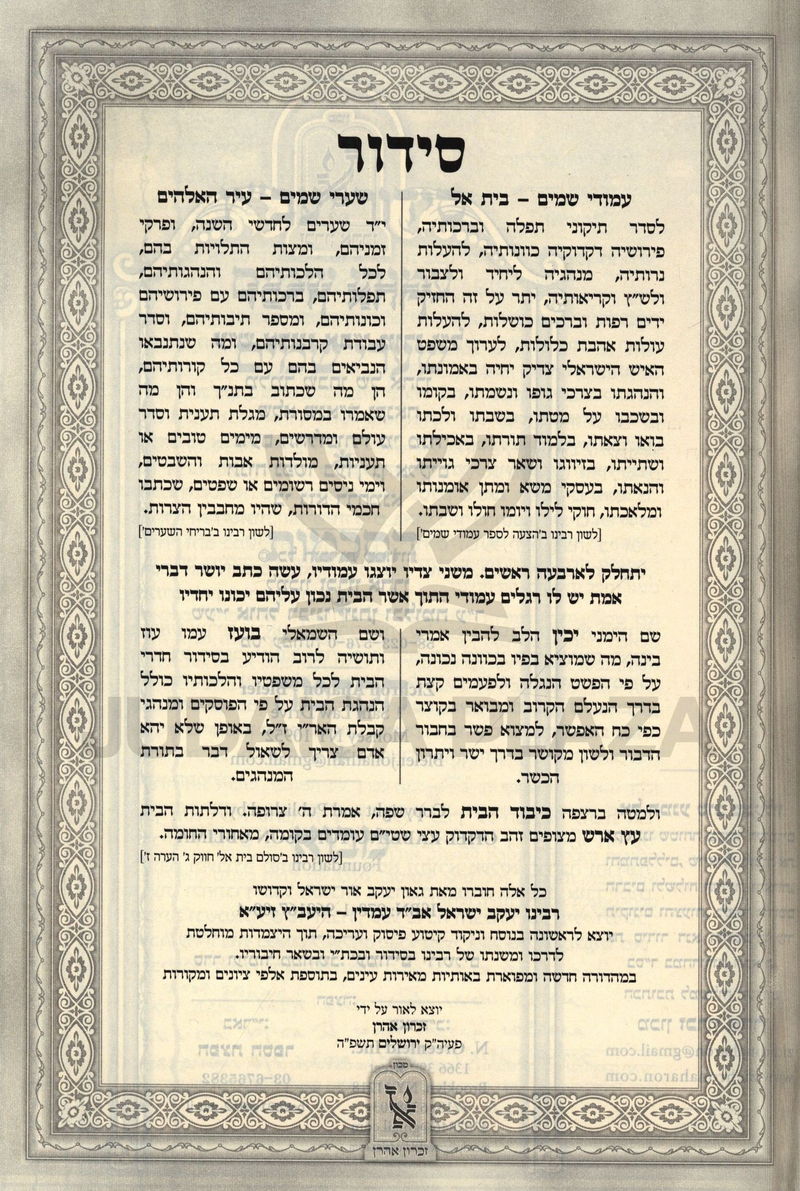 סידור
עמודי שמים – בית אל
לסדר תיקוני תפלה וברכותיה,
פירושיה דקדוקיה כוונותיה, להעלות
נרותיה, מנהגיה ליחיד ולצבור
ולש״ץ וקריאותיה, יתר על זה החזיק
ידים רפות וברכים כושלות, להעלות
עולות אהבת כלולות, לערוך משפט
האיש הישראלי צדיק יחיה באמונתו,
והנהגתו בצרכי גופו ונשמתו, בקומו
ובשכבו על מטתו, בשבתו ולכתו
בואו וצאתו, בלמוד תורתו, באכילתו
ושתייתו, בזיווגו ושאר צרכי גוייתו
והנאתו, בעסקי משא ומתן אומנותו
ומלאכתו, חוקי לילו ויומו חולו ושבתו.
[לשון רבינו ב'הצעה לספר עמודי שמים']
שערי שמים – עיר האלהים
י״ד שערים לחדשי השנה, ופרקי
זמניהם, ומצות התלויות בהם,
לכל הלכותיהם והנהגותיהם,
תפלותיהם, ברכותיהם עם פירושיהם
וכונותיהם, ומספר תיבותיהם, וסדר
עבודת קרבנותיהם, ומה שנתנבאו
הנביאים בהם עם כל קורותיהם,
הן מה שכתוב בתנ״ך והן מה
שאמרו במסורת, מגלת תענית וסדר
עולם ומדרשים, מימים טובים או
תעניות, מולדות אבות והשבטים,
וימי ניסים רשומים או שפטים, שכתבו
חכמי הדורות, שהיו מחבבין הצרות.
[לשון רבינו ב'בריחי השערים']
יתחלק לארבעה ראשים. משני צדיו יוצגו עמודיו, עשה כתב יושר דברי
אמת יש לו רגלים עמודי התוך אשר הבית נכון עליהם יכונו יחדיו
שם הימני יכין הלב להבין אמרי
בינה, מה שמוציא בפיו בכוונה נכונה,
על פי הפשט הנגלה ולפעמים קצת
בדרך הנעלם הקרוב ומבואר בקוצר
כפי כח האפשר, למצוא פשר בחבור
הדבור ולשון מקושר בדרך ישר ויתרון
הכשר.
ושם השמאלי בועז עמו עוז
ותושיה לרוב הודיע בסידור חדרי
הבית לכל משפטיו והלכותיו כולל
הנהגת הבית על פי הפוסקים ומנהגי
קבלת האר״י ז״ל, באופן שלא יהא
אדם צריך לשאול דבר בתורת
המנהגים.
ולמטה ברצפה כיבוד הבית לברר שפה, אמרת ה' צרופה. ודלתות הבית
עץ ארש מצופים זהב הדקדוק עצי שטי״ם עומדים בקומה, מאחורי החומה.
[לשון רבינו ב'סולם בית אל' חווק ג' הערה ז']
כל אלה חוברו מאת גאון יעקב אור ישראל וקדושו
רבינו יעקב ישראל אב״ד עמדין – היעב״ץ זיע״א
יוצא לראשונה בנוסח וניקוד קיטוע פיסוק ועריכה, תוך היצמדות מוחלטת
לדרכו ומשנתו של רבינו בסידור ובכת״י ובשאר חיבוריו.
במהדורה חדשה ומפוארת באותיות מאירות עינים, בתוספת אלפי ציונים ומקורות
יוצא לאור על ידי
זכרון אהרן
פעיה״ק ירושלים תשפ״ה
מכון
זכרון אהרן